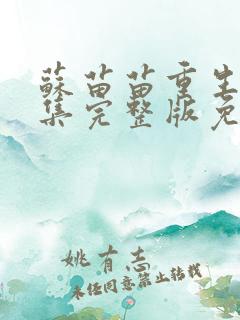 蘇苗苗重生
集完整版免
姚有志
未经同意禁止转载